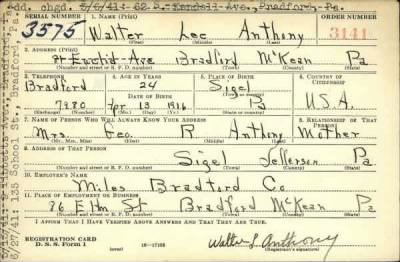 Add. chgd. 5/6/41: 62 S. Kendall Ave., Bradford, Pa.
SERIAL NUMBER 1. NAME (Print) ORDER NUMBER
3575 Walter Lee Anthony 3141
(First) (Middle) (Last)
2. ADDRESS (Print)
Euclid Ave Bradford McKean Pa
(Number and street or R. F. D. number) (Town) (County) (State)
3. TELEPHONE 4. AGE IN YEARS 5. PLACE OF BIRTH 6. COUNTRY OF CITIZENSHIP
Bradford 24 Sigel
DATE OF BIRTH
7980 Apr 13 1916 Pa U.S.A.
(Exchange) (Number) (Mo.) (Day) (Yr.) (State or country)
7. NAME OF PERSON WHO WILL ALWAYS KNOW YOUR ADDRESS 8. RELATIONSHIP OF THAT PERSON
Mrs. Geo. R Anthony Mother
(Mr., Mrs., Miss) (First) (Middle) (Last)
9. ADDRESS OF THAT PERSON
Sigel Jefferson Pa
(Number and street or R. F. D. number) (Town) (County) (State)
10. EMPLOYER'S NAME
Miles Bradford Co
11. PLACE OF EMPLOYMENT OR BUSINESS
86 Elm St Bradford McKean Pa
(Number and street or R. F. D. number) (Town) (County) (State)
I AFFIRM THAT I HAVE VERIFIED ABOVE ANSWERS AND THAT THEY ARE TRUE.
REGISTRATION CARD
D. S. S. FORM 1 16—17105 Walter L Anthony
(Registrant's signature)
6/27/41: 135 School St., Bradford, Pa.